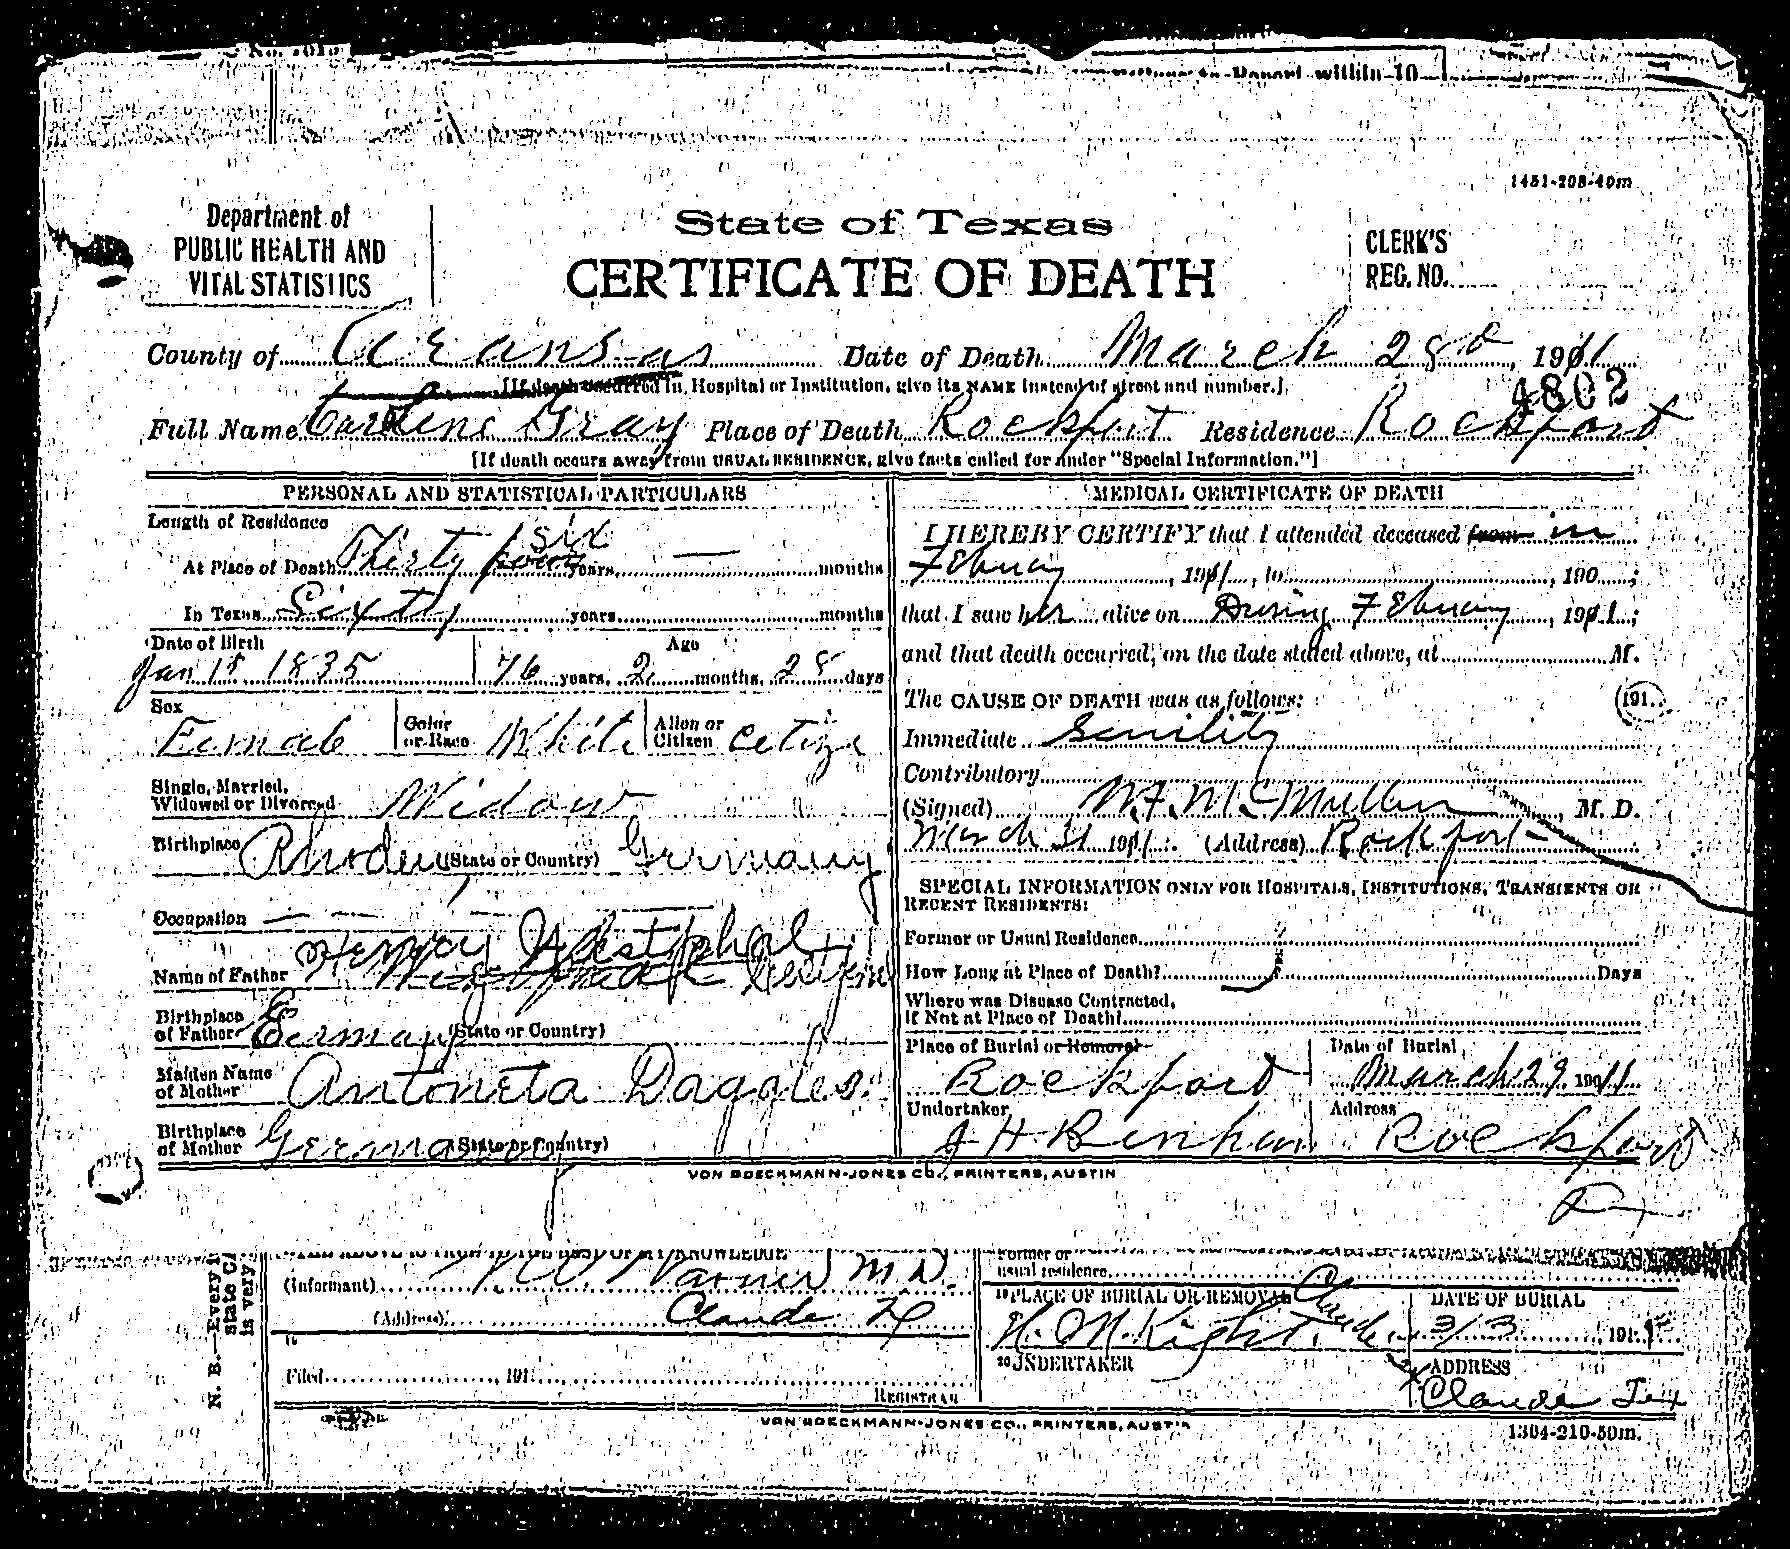 within 10
1451-208-40m
Department of
PUBLIC HEALTH AND
VITAL STATISTICS
State of Texas
CERTIFICATE OF DEATH
CLERK'S
REG. NO.
County of Aransas Date of Death March 28 1911
[If death occurred in Hospital or Institution, give its NAME instead of street and number.]
4802
Full Name Caroline Gray Place of Death Rockport Residence Rockport
[If death occurs away from USUAL RESIDENCE, give facts called for under "Special Information."]
PERSONAL AND STATISTICAL PARTICULARS
Length of Residence
At Place of Death Thirty four six years, — months
In Texas Sixty years months
Date of Birth Age
Jan 1st 1835 76 years, 2 months, 28 days
Sex Female Color or Race White Alien or Citizen Citize
Single, Married,
Widowed or Divorced Widow
Birthplace Rhoden, (State or Country) Germany
Occupation — — —
Henry Westphal
Name of Father
Birthplace
of Father Germany (State or Country)
Maiden Name
of Mother Antoneta Daggles.
Birthplace
of Mother Germany (State or Country)
MEDICAL CERTIFICATE OF DEATH
I HEREBY CERTIFY that I attended deceased from in
February, 1911, to , 190 ;
that I saw her alive on During February, 1911;
and that death occurred, on the date stated above, at M.
The CAUSE OF DEATH was as follows:
191
Immediate Senility
Contributory
(Signed) W. F. McMullen, M. D.
March 31 1911. (Address) Rockport
SPECIAL INFORMATION ONLY FOR HOSPITALS, INSTITUTIONS, TRANSIENTS OR
RECENT RESIDENTS:
Former or Usual Residence
How Long at Place of Death? Days
Where was Disease Contracted,
If Not at Place of Death?
Place of Burial or Removal Date of Burial
Rockport March 29 1911
Undertaker Address
J H Benham Rockport
VON BOECKMANN-JONES CO., PRINTERS, AUSTIN
N. B.—Every
state
is very
THE ABOVE IS TRUE TO THE BEST OF MY KNOWLEDGE
(Informant) Warner M D.
(Address) Claude Tx
Filed 191
REGISTRAR
Former or
usual residence
19 PLACE OF BURIAL OR REMOVAL DATE OF BURIAL
Claude 3/3 191
20 UNDERTAKER ADDRESS
H. M. Kight Claude Tex
VON BOECKMANN-JONES CO., PRINTERS, AUSTIN
1304-210-50m.